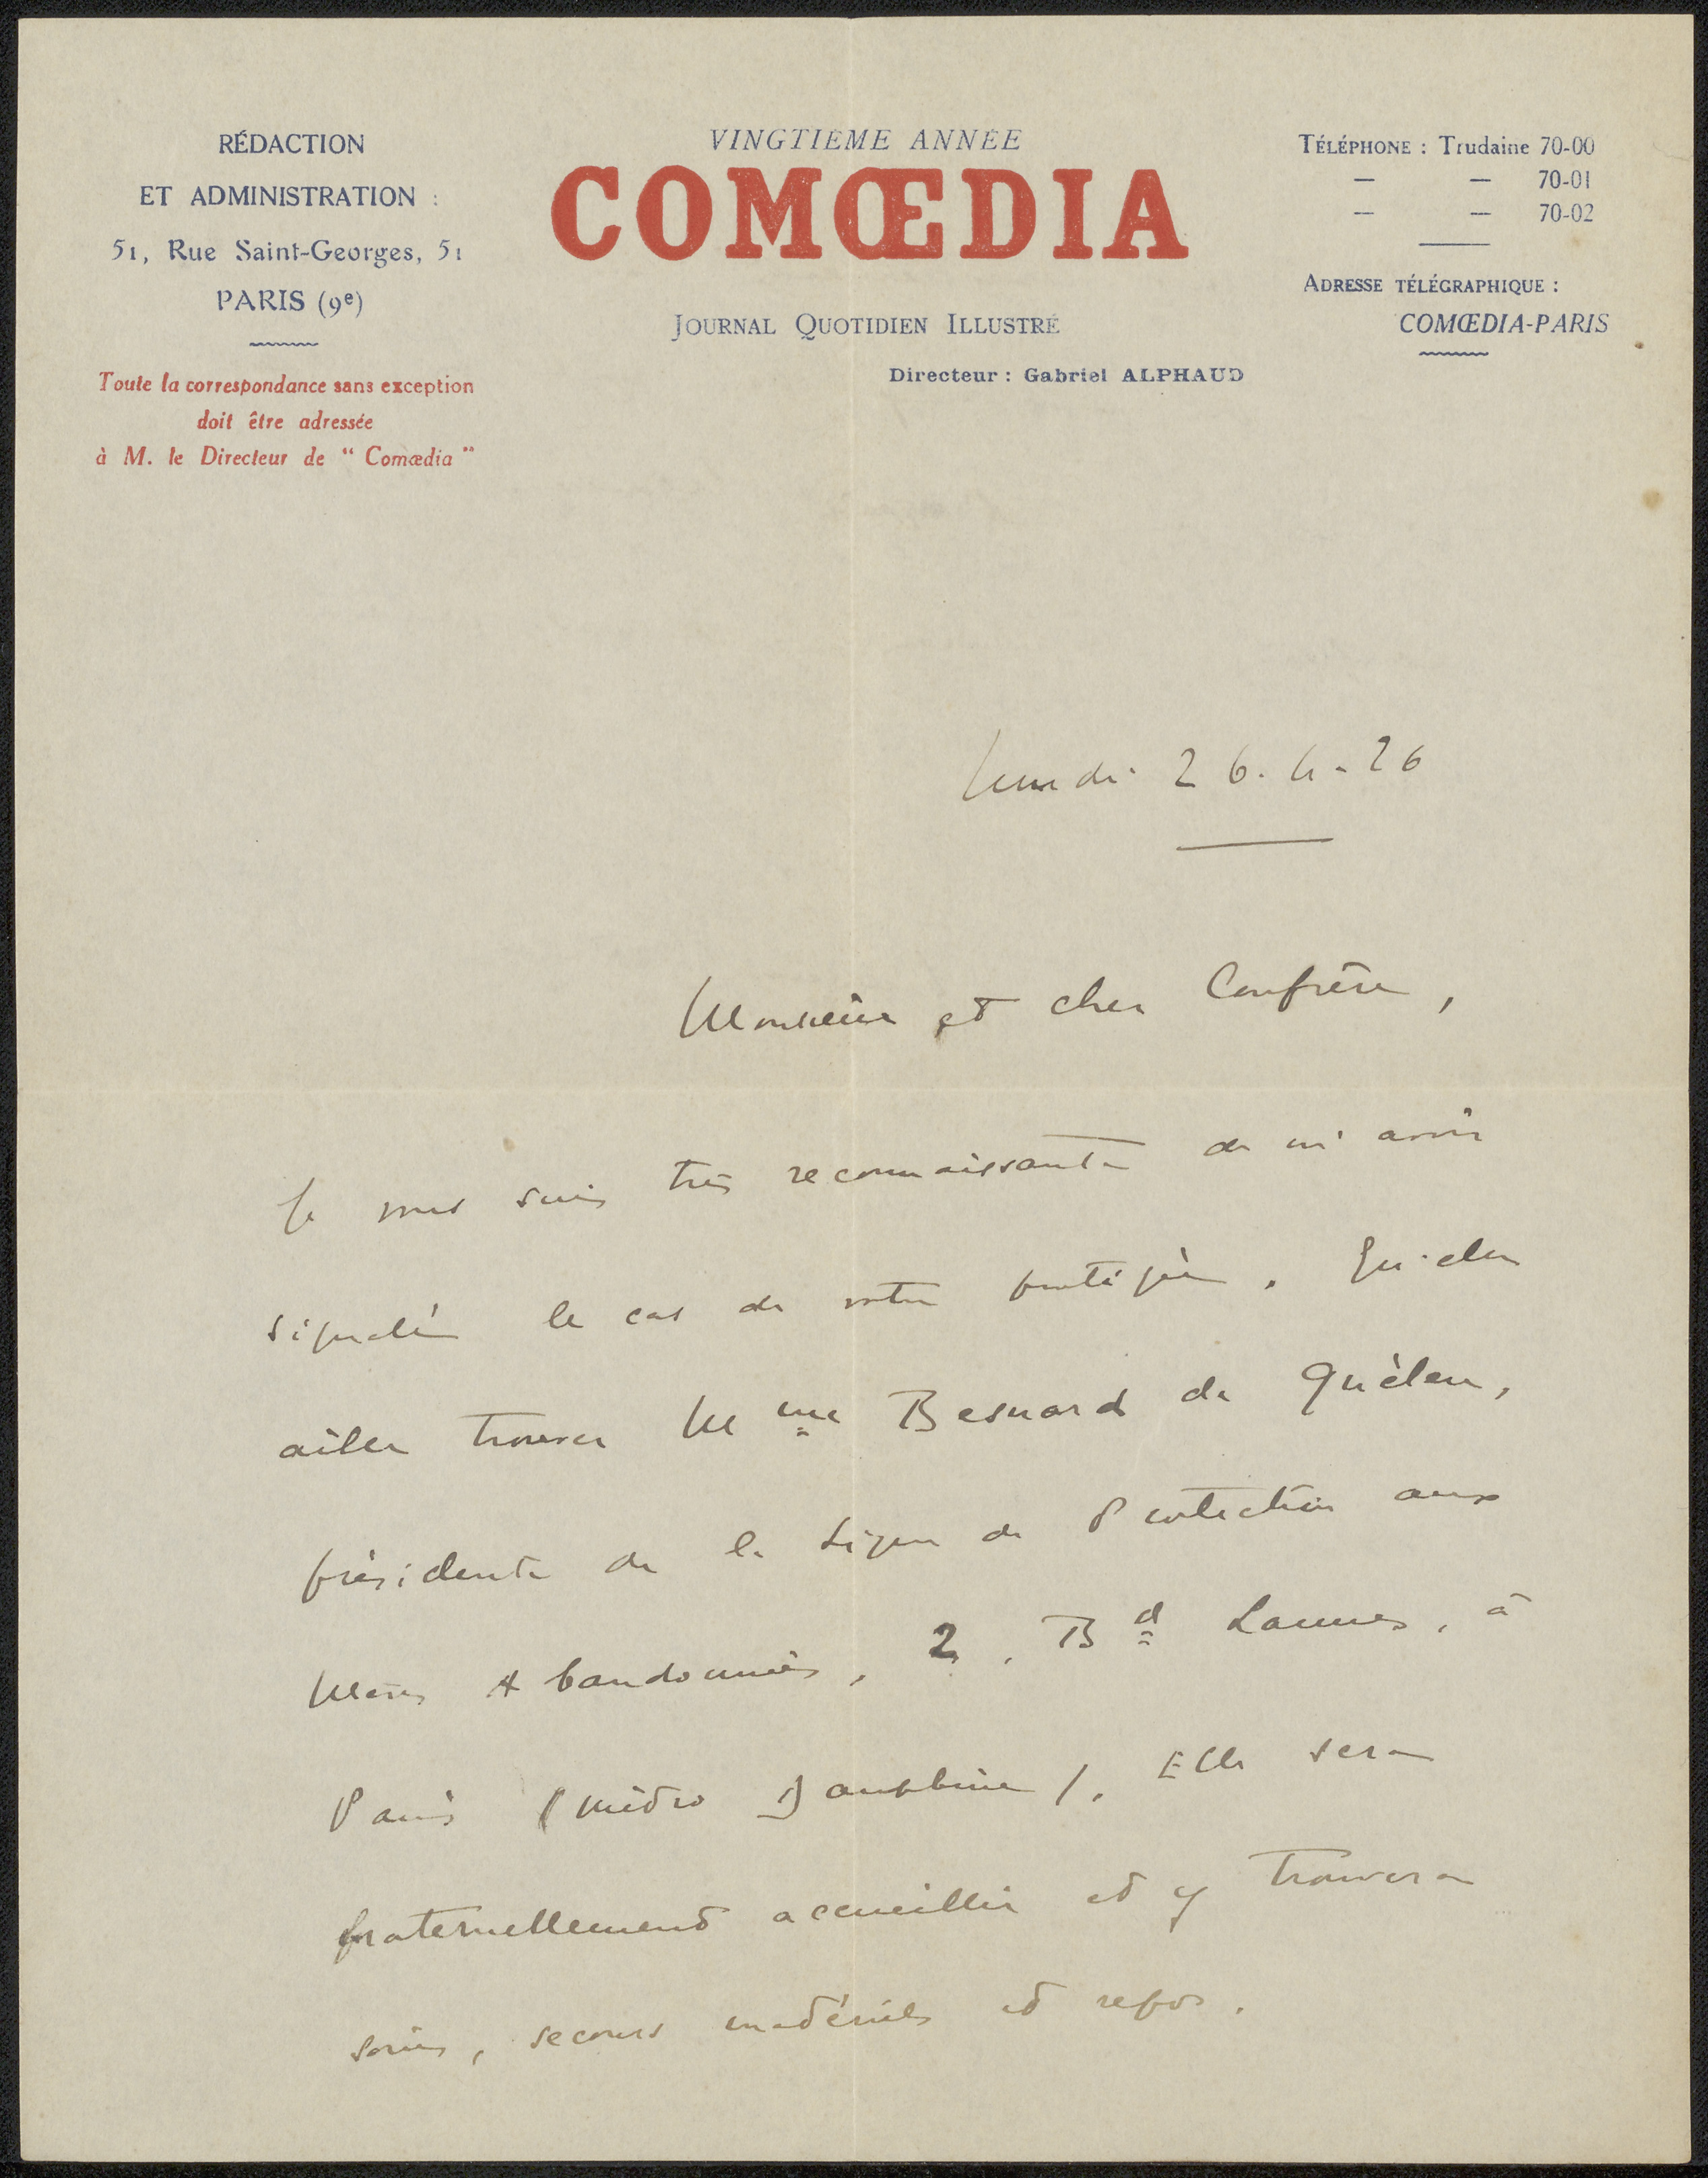 RÉDACTION
ET ADMINISTRATION :
51, Rue Saint-Georges, 51
PARIS (9e)
Toute la correspondance sans exception
doit être adressée
à M. le Directeur de " Comœdia "
VINGTIÈME ANNÉE
COMŒDIA
JOURNAL QUOTIDIEN ILLUSTRÉ
Directeur : Gabriel ALPHAUD
TÉLÉPHONE : Trudaine 70-00
— — 70-01
— — 70-02
ADRESSE TÉLÉGRAPHIQUE :
COMŒDIA-PARIS
Lundi 26-4-26
Monsieur et cher Confrère,
Je vous suis très reconnaissante de m'avoir
signalé le cas de votre protégée. Qu'elle
aille trouver Mme Besnard de Quélen,
présidente de la Ligue de Protection aux
Mères Abandonnées, 2, Bd Lannes, à
Paris (Métro Dauphine). Elle sera
fraternellement accueillie et y trouvera
soins, secours matériels et repos.